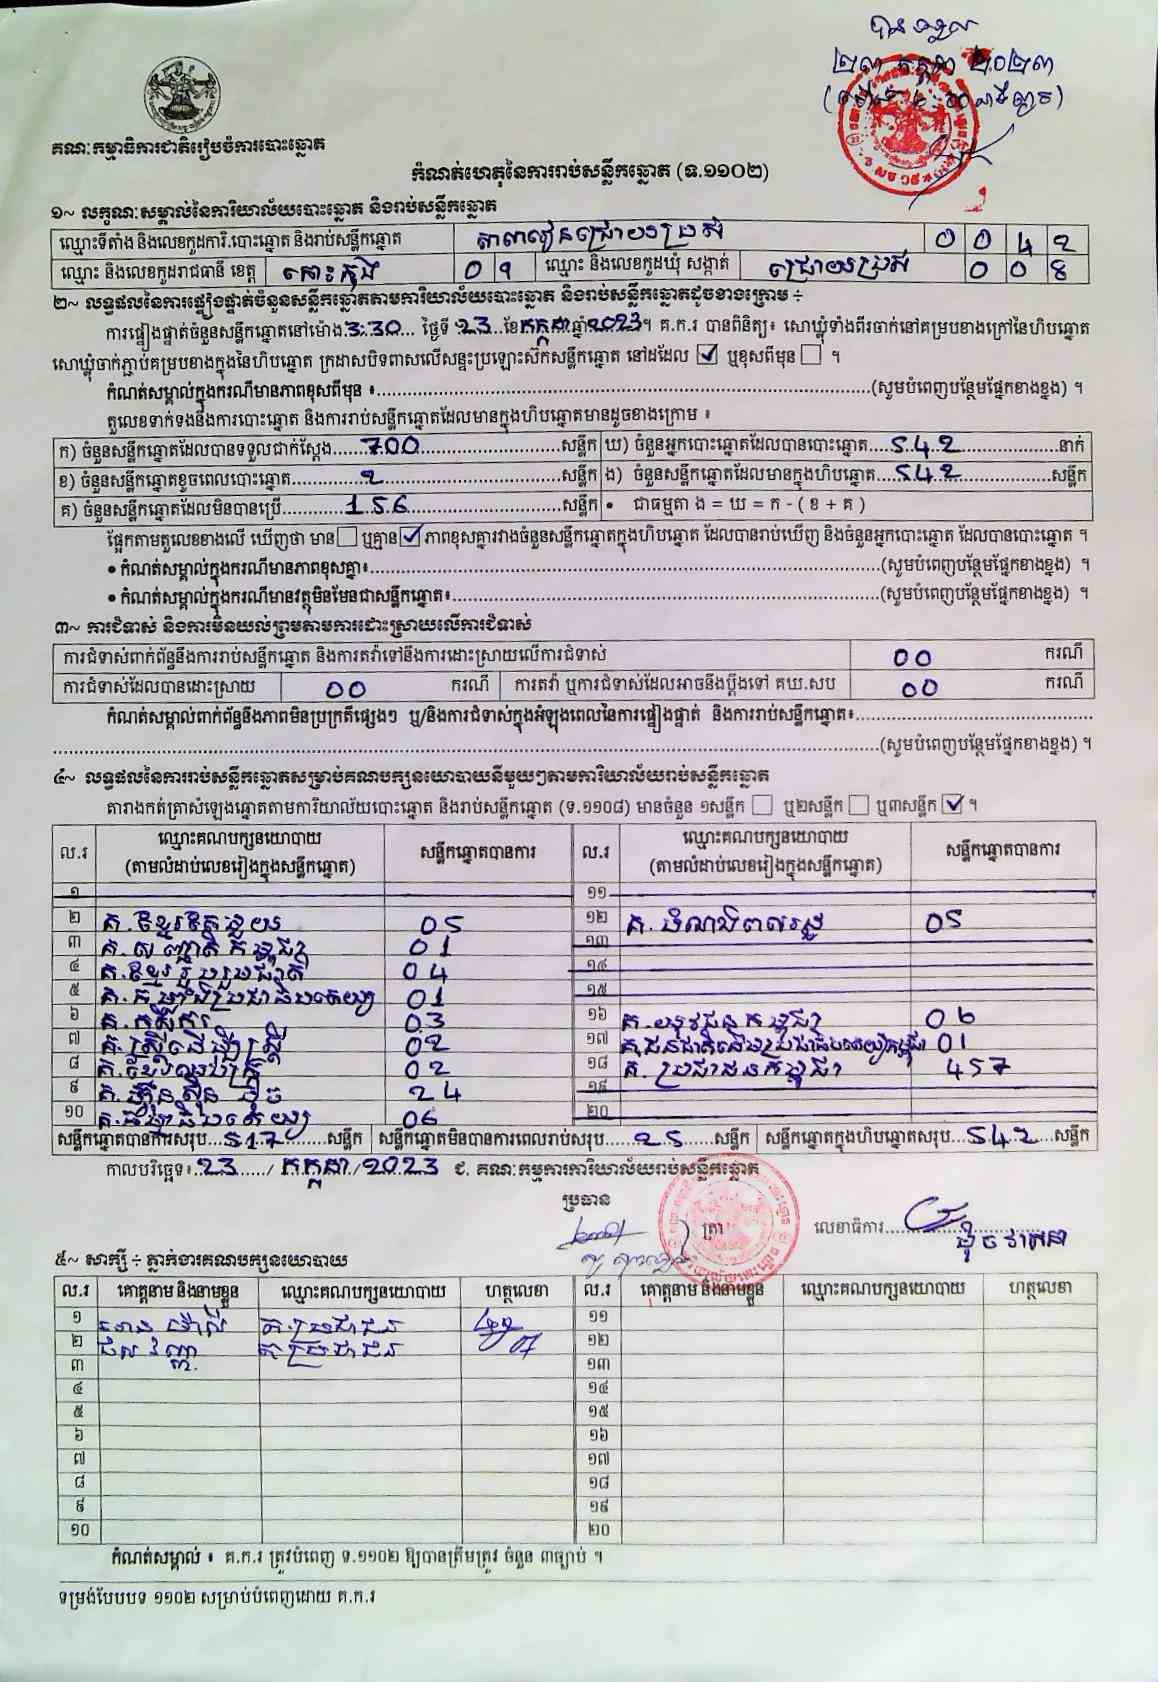 បានទទួល
២៣ កក្កដា ២០២៣
គណៈកម្មាធិការជាតិរៀបចំការបោះឆ្នោត
កំណត់ហេតុនៃការរាប់សន្លឹកឆ្នោត (ទ.១១០២)
១~ លក្ខណៈសម្គាល់នៃការិយាល័យបោះឆ្នោត និងរាប់សន្លឹកឆ្នោត
ឈ្មោះទីតាំង និងលេខកូដការិ.បោះឆ្នោត និងរាប់សន្លឹកឆ្នោត សាលារៀនជ្រោយប្រស់ 0 0 4 2
ឈ្មោះ និងលេខកូដរាជធានី ខេត្ត កោះកុង 0 9 ឈ្មោះ និងលេខកូដឃុំ សង្កាត់ ជ្រោយប្រស់ 0 0 8
២~ លទ្ធផលនៃការផ្ទៀងផ្ទាត់ចំនួនសន្លឹកឆ្នោតតាមការិយាល័យបោះឆ្នោត និងរាប់សន្លឹកឆ្នោតដូចខាងក្រោម ÷
ការផ្ទៀងផ្ទាត់ចំនួនសន្លឹកឆ្នោតនៅម៉ោង 3:30 ថ្ងៃទី 23 ខែ កក្កដា ឆ្នាំ 2023 ។ គ.ក.រ បានពិនិត្យ៖ សោឃ្លុំទាំងពីរចាក់នៅគម្របខាងក្រៅនៃហិបឆ្នោត
សោឃ្លុំចាក់ភ្ជាប់គម្របខាងក្នុងនៃហិបឆ្នោត ក្រដាសបិទពាសលើសន្ទះប្រឡោះស៊កសន្លឹកឆ្នោត នៅដដែល ☑ ឬខុសពីមុន ☐ ។
កំណត់សម្គាល់ក្នុងករណីមានភាពខុសពីមុន ៖ (សូមបំពេញបន្ថែមផ្នែកខាងខ្នង) ។
តួលេខទាក់ទងនឹងការបោះឆ្នោត និងការរាប់សន្លឹកឆ្នោតដែលមានក្នុងហិបឆ្នោតមានដូចខាងក្រោម ៖
ក) ចំនួនសន្លឹកឆ្នោតដែលបានទទួលជាក់ស្តែង 700 សន្លឹក ឃ) ចំនួនអ្នកបោះឆ្នោតដែលបានបោះឆ្នោត 542 នាក់
ខ) ចំនួនសន្លឹកឆ្នោតខូចពេលបោះឆ្នោត 2 សន្លឹក ង) ចំនួនសន្លឹកឆ្នោតដែលមានក្នុងហិបឆ្នោត 542 សន្លឹក
គ) ចំនួនសន្លឹកឆ្នោតដែលមិនបានប្រើ 156 សន្លឹក • ជាធម្មតា ង = ឃ = ក - ( ខ + គ )
ផ្អែកតាមតួលេខខាងលើ ឃើញថា មាន ☐ ឬគ្មាន ☑ ភាពខុសគ្នារវាងចំនួនសន្លឹកឆ្នោតក្នុងហិបឆ្នោត ដែលបានរាប់ឃើញ និងចំនួនអ្នកបោះឆ្នោត ដែលបានបោះឆ្នោត ។
• កំណត់សម្គាល់ក្នុងករណីមានភាពខុសគ្នា៖ (សូមបំពេញបន្ថែមផ្នែកខាងខ្នង) ។
• កំណត់សម្គាល់ក្នុងករណីមានវត្ថុមិនមែនជាសន្លឹកឆ្នោត៖ (សូមបំពេញបន្ថែមផ្នែកខាងខ្នង) ។
៣~ ការជំទាស់ និងការមិនយល់ព្រមតាមការដោះស្រាយលើការជំទាស់
ការជំទាស់ពាក់ព័ន្ធនឹងការរាប់សន្លឹកឆ្នោត និងការតវ៉ាទៅនឹងការដោះស្រាយលើការជំទាស់ 00 ករណី
ការជំទាស់ដែលបានដោះស្រាយ 00 ករណី ការតវ៉ា ឬការជំទាស់ដែលអាចនឹងប្តឹងទៅ គឃ.សប 00 ករណី
កំណត់សម្គាល់ពាក់ព័ន្ធនឹងភាពមិនប្រក្រតីផ្សេងៗ ឬ/និងការជំទាស់ក្នុងអំឡុងពេលនៃការផ្ទៀងផ្ទាត់ និងការរាប់សន្លឹកឆ្នោត៖
(សូមបំពេញបន្ថែមផ្នែកខាងខ្នង) ។
៤~ លទ្ធផលនៃការរាប់សន្លឹកឆ្នោតសម្រាប់គណបក្សនយោបាយនីមួយៗតាមការិយាល័យរាប់សន្លឹកឆ្នោត
តារាងកត់ត្រាសំឡេងឆ្នោតតាមការិយាល័យបោះឆ្នោត និងរាប់សន្លឹកឆ្នោត (ទ.១១០៨) មានចំនួន ១សន្លឹក ☐ ឬ២សន្លឹក ☐ ឬ៣សន្លឹក ☑ ។
ល.រ ឈ្មោះគណបក្សនយោបាយ (តាមលំដាប់លេខរៀងក្នុងសន្លឹកឆ្នោត) សន្លឹកឆ្នោតបានការ ល.រ ឈ្មោះគណបក្សនយោបាយ (តាមលំដាប់លេខរៀងក្នុងសន្លឹកឆ្នោត) សន្លឹកឆ្នោតបានការ
១ ១១
២ គ.ខ្មែរតែមួយ 05 ១២ គ.ជំណាងពលរដ្ឋ 05
៣ គ.សញ្ជាតិកម្ពុជា 01 ១៣
៤ គ.ខ្មែររួបរួមជាតិ 04 ១៤
៥ គ.កម្លាំងប្រជាធិបតេយ្យ 01 ១៥
៦ គ.កសិករ 03 ១៦ គ.យុវជនកម្ពុជា 06
៧ គ.ស្ត្រីដើម្បីស្ត្រី 02 ១៧ គ.ជនជាតិដើមប្រជាធិបតេយ្យកម្ពុជា 01
៨ គ.ខ្មែរឈប់ក្រ 02 ១៨ គ.ប្រជាជនកម្ពុជា 457
៩ គ.ហ្វ៊ុនស៊ិនប៉ិច 24 ១៩
១០ គ.ធម្មាធិបតេយ្យ 06 ២០
សន្លឹកឆ្នោតបានការសរុប 517 សន្លឹក សន្លឹកឆ្នោតមិនបានការពេលរាប់សរុប 25 សន្លឹក សន្លឹកឆ្នោតក្នុងហិបឆ្នោតសរុប 542 សន្លឹក
កាលបរិច្ឆេទ៖ 23 / កក្កដា / 2023 ជ. គណៈកម្មការការិយាល័យរាប់សន្លឹកឆ្នោត
ប្រធាន ត្រា លេខាធិការ
៥~ សាក្សី ÷ ភ្នាក់ងារគណបក្សនយោបាយ
ល.រ គោត្តនាម និងនាមខ្លួន ឈ្មោះគណបក្សនយោបាយ ហត្ថលេខា ល.រ គោត្តនាម និងនាមខ្លួន ឈ្មោះគណបក្សនយោបាយ ហត្ថលេខា
១ គ.ប្រជាជន ១១
២ គ.ប្រជាជន ១២
៣ ១៣
៤ ១៤
៥ ១៥
៦ ១៦
៧ ១៧
៨ ១៨
៩ ១៩
១០ ២០
កំណត់សម្គាល់ ៖ គ.ក.រ ត្រូវបំពេញ ទ.១១០២ ឱ្យបានត្រឹមត្រូវ ចំនួន ៣ច្បាប់ ។
ទម្រង់បែបបទ ១១០២ សម្រាប់បំពេញដោយ គ.ក.រ